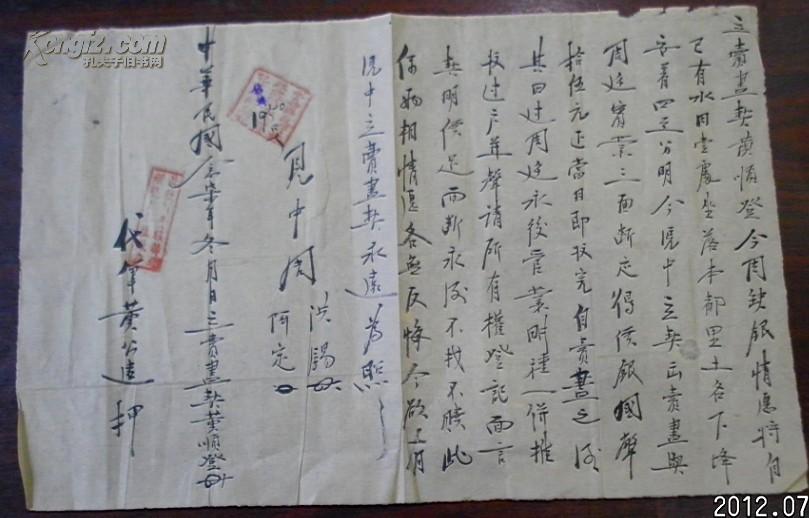 立賣盡契黃順登今因缺銀情愿將自
己有水田壹處坐落本都里土名下
安着四至分明今憑中立契出賣盡與
周廷寶業三面断定得價銀國
拾伍元正當日即收完自賣盡之后
其田过周廷永後管業附種一併推
收过户並聲請所有權登記面言
契明價足而断永后不找不贖此
係两相情愿各無反悔今欲有
憑中立賣盡契永遠為照
見中周
洪賜
阿定
中華民國念柒年冬月日立賣盡契黃順登
代筆黃公遠押
Kongfz.com
孔夫子旧书网
2012.07